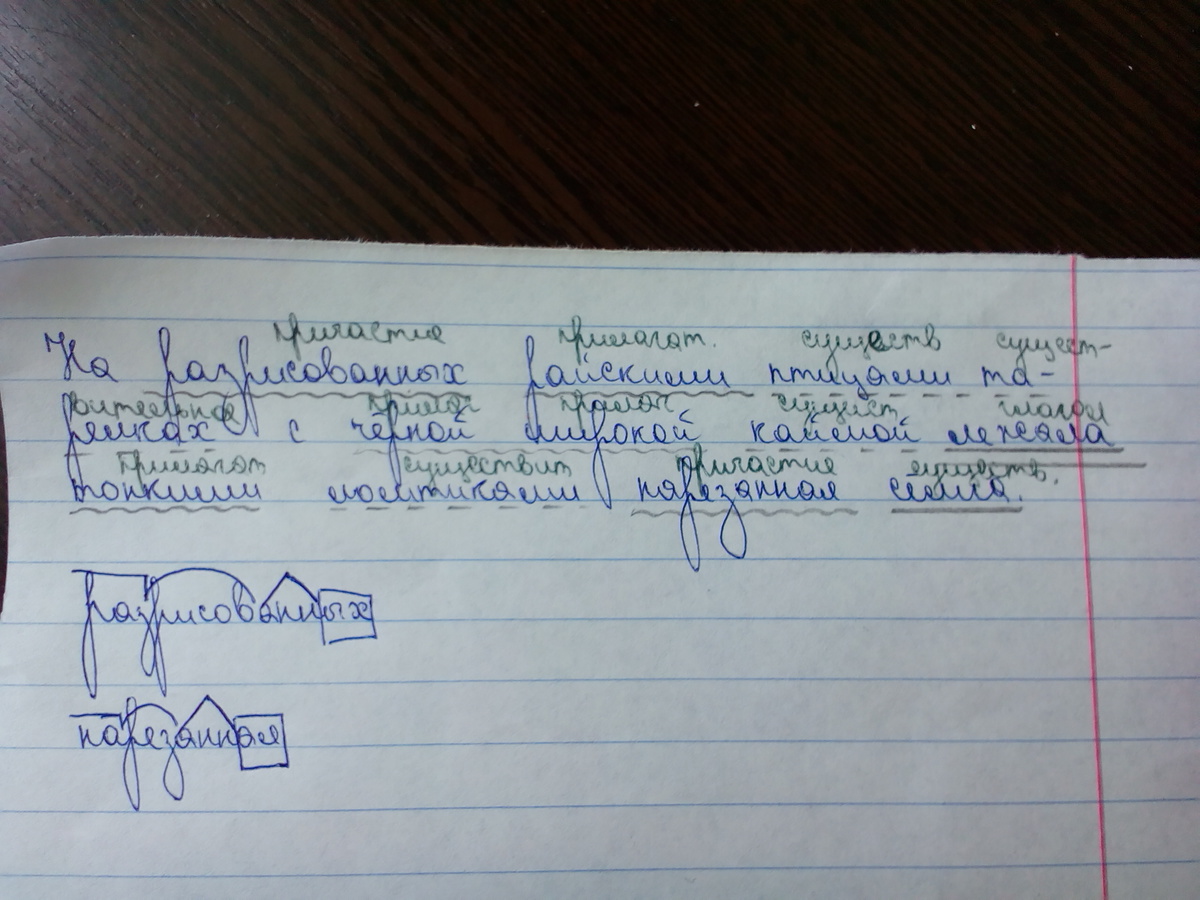 причастие прилагат. существ сущест-
На разрисованных райскими птицами та-
вительное прилаг прилаг сущест глагол
релках с чёрной широкой каймой лежала
прилагат существит причастие существ.
тонкими ломтиками нарезанная сёмга.
разрисованных
нарезанная